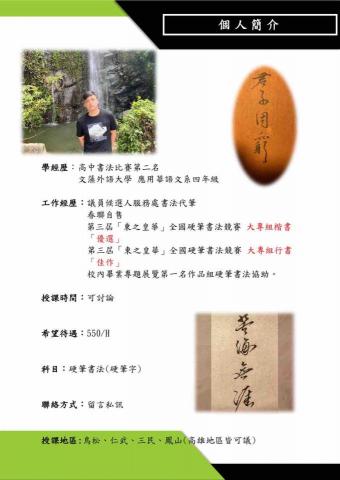 個人簡介
君子固窮
學經歷：高中書法比賽第二名
文藻外語大學 應用華語文系四年級
工作經歷：議員候選人服務處書法代筆
春聯自售
第三屆「東之皇華」全國硬筆書法競賽 大專組楷書
「優選」
第三屆「東之皇華」全國硬筆書法競賽 大專組行書
「佳作」
校內畢業專題展覽第一名作品組硬筆書法協助。
授課時間：可討論
希望待遇：550/H
科目：硬筆書法(硬筆字)
聯絡方式：留言私訊
授課地區：鳥松、仁武、三民、鳳山(高雄地區皆可議)